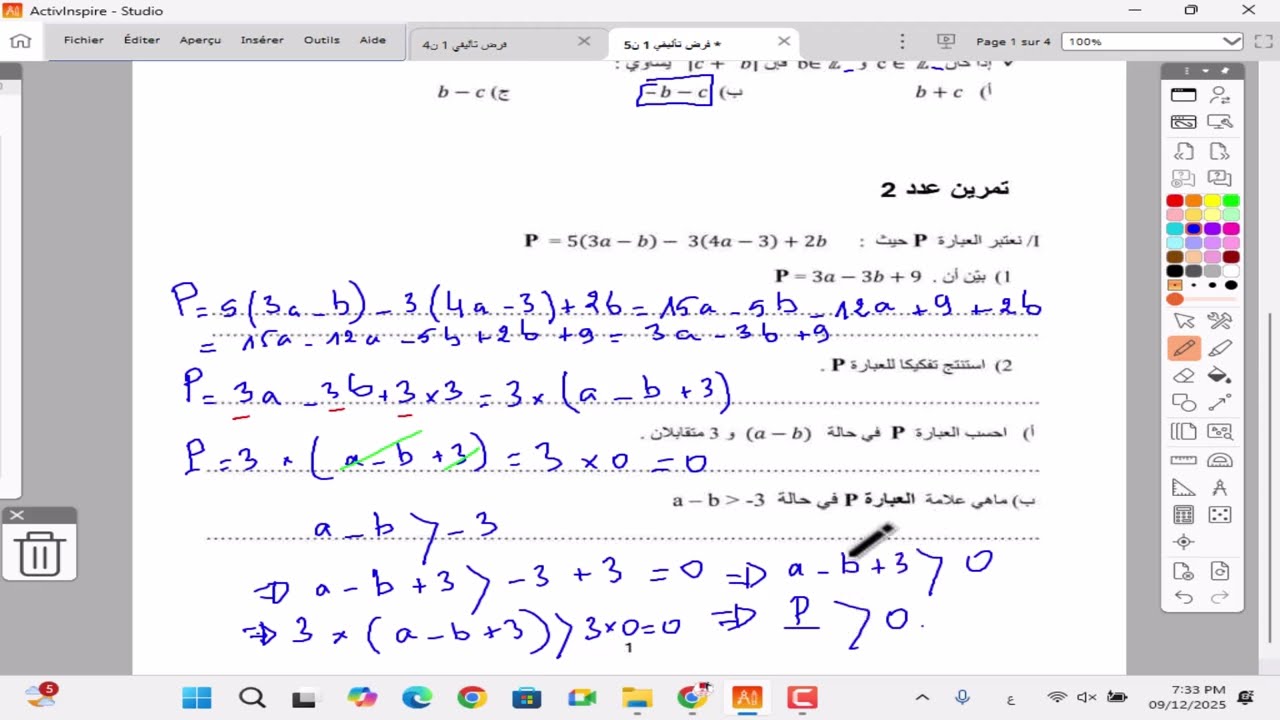 ActivInspire - Studio
Fichier Éditer Aperçu Insérer Outils Aide
فرض تأليفي 1 ن4
فرض تأليفي 1 ن5 *
Page 1 sur 4
100%
إذا كان c ∈ ℤ_ و b ∈ ℤ_ فإن |c + b| يساوي :
أ) b + c
ب) −b − c
ج) b − c
تمرين عدد 2
I/ نعتبر العبارة P حيث : P = 5(3a − b) − 3(4a − 3) + 2b
1) بيّن أن . P = 3a − 3b + 9
P = 5(3a - b) - 3(4a - 3) + 2b = 15a - 5b - 12a + 9 + 2b
= 15a - 12a - 5b + 2b + 9 = 3a - 3b + 9
2) استنتج تفكيكا للعبارة P .
P = 3a - 3b + 3 × 3 = 3 × (a - b + 3)
أ) احسب العبارة P في حالة (a − b) و 3 متقابلان .
P = 3 × (a - b + 3) = 3 × 0 = 0
ب) ماهي علامة العبارة P في حالة a – b > -3
a - b > -3
⇒ a - b + 3 > -3 + 3 = 0 ⇒ a - b + 3 > 0
⇒ 3 × (a - b + 3) > 3×0=0 ⇒ P > 0.
1
5
ع
7:33 PM
09/12/2025